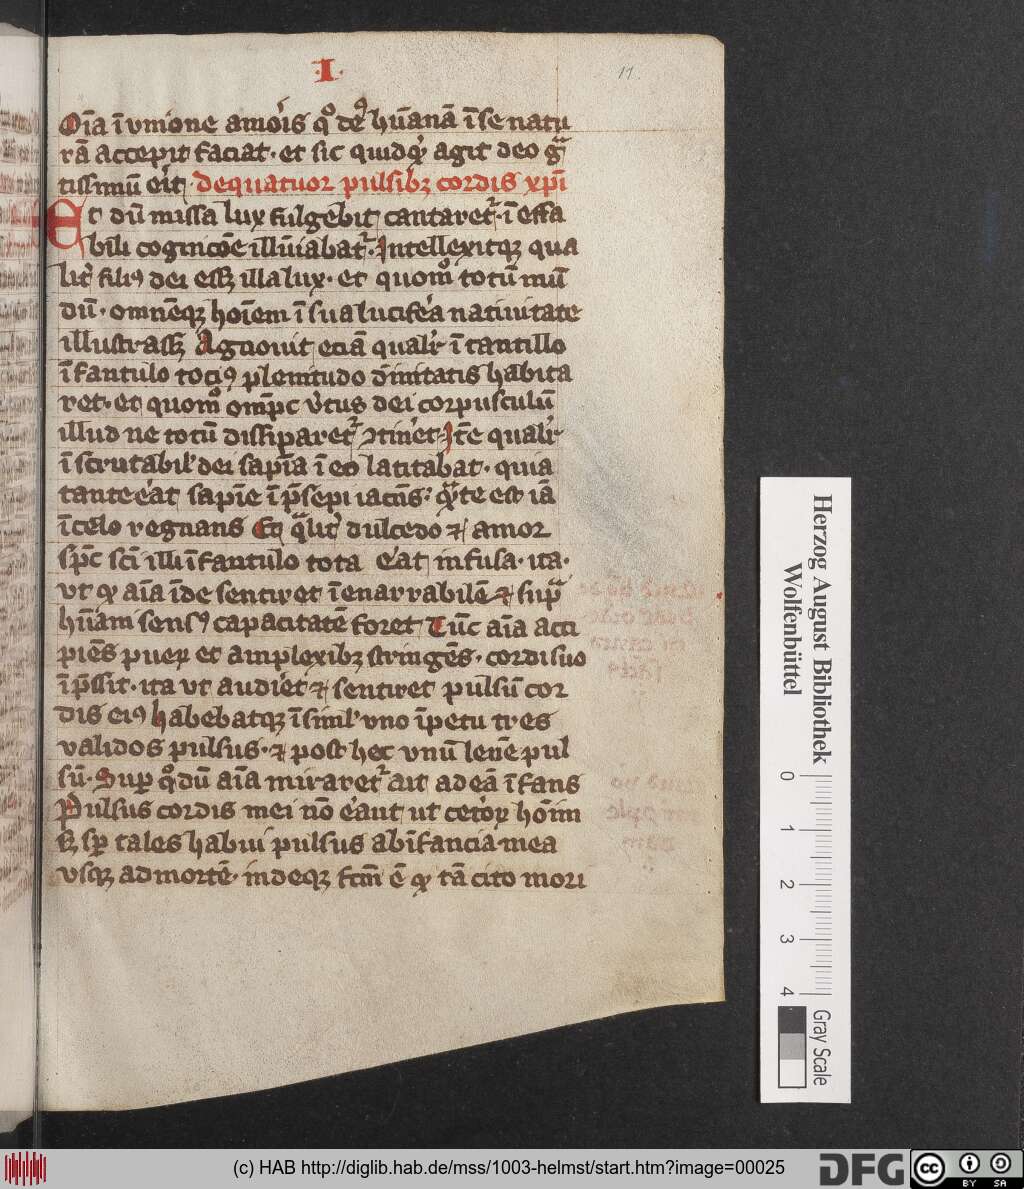 .I.
11.
Oīa ī vnione amoꝛis qͦ de⁹ hūanā ī se natu
rā accepit faciat · et sic quidqͥd agit deo gͣ
tissimū erit de quatuor pulsibꝫ cordis xp̄i
Et dū missa lux fulgebit cantaretᷣ · ī effa
bili cognicōe illūiabatᷣ · Intellexitqꝫ qua
litͥ filiꝰ dei eēꝫ illa lux · et quomͦ totū mū
dū · omnēqꝫ hoīem ī sua lucifēa natiuitate
illustrassꝫ Agnouit eciā qualit ī tantillo
īfantulo tociꝰ plenitudo diūitatis habita
ret · et quomͦ omp̄c vtus dei corpusculū
illud ne totū dissiparetᷣ ꝯtinet · Itē qualit
īscrutabilꝰ dei sapīa ī eo latitabat · quia
tante eāt sapīe ī p̄sepi iacēs : qͣte est iā
ī celo regnans Et qͣlitͥ dulcedo ⁊ amor
sp̄c sc̄i illi īfantulo tota eāt infusa · ita ·
vt qꝫ aīa īde sentiret īenarrabilē ⁊ supͣ
hūani sensꝰ capacitatē foret Tūc aīa acci
piēs pueꝝ et amplexibꝫ stringēs · cordi suo
īp̄ssit · ita vt audiēt ⁊ sentiret pulsū cor
dis eiꝰ habebatqꝫ ī simlꝰ vno īpetu tres
validos pulsus · ⁊ post hec vnū lenē pul
sū · Super qͦ dū aīa miraretᷣ ait ad eā īfans
Pulsus cordis mei nō eāut ut ceteroꝝ hoīm
sꝫ sꝑ tales habui pulsus ab īfancia mea
vsqꝫ ad mortē · indeqꝫ fc̄m ē qꝫ tā cito mori
Herzog August Bibliothek
Wolfenbüttel
0 1 2 3 4
Gray Scale
(c) HAB http://diglib.hab.de/mss/1003-helmst/start.htm?image=00025
DFG
cc BY SA